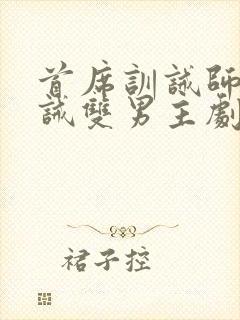 首席訓誡師
誡雙男主劇
裙子控